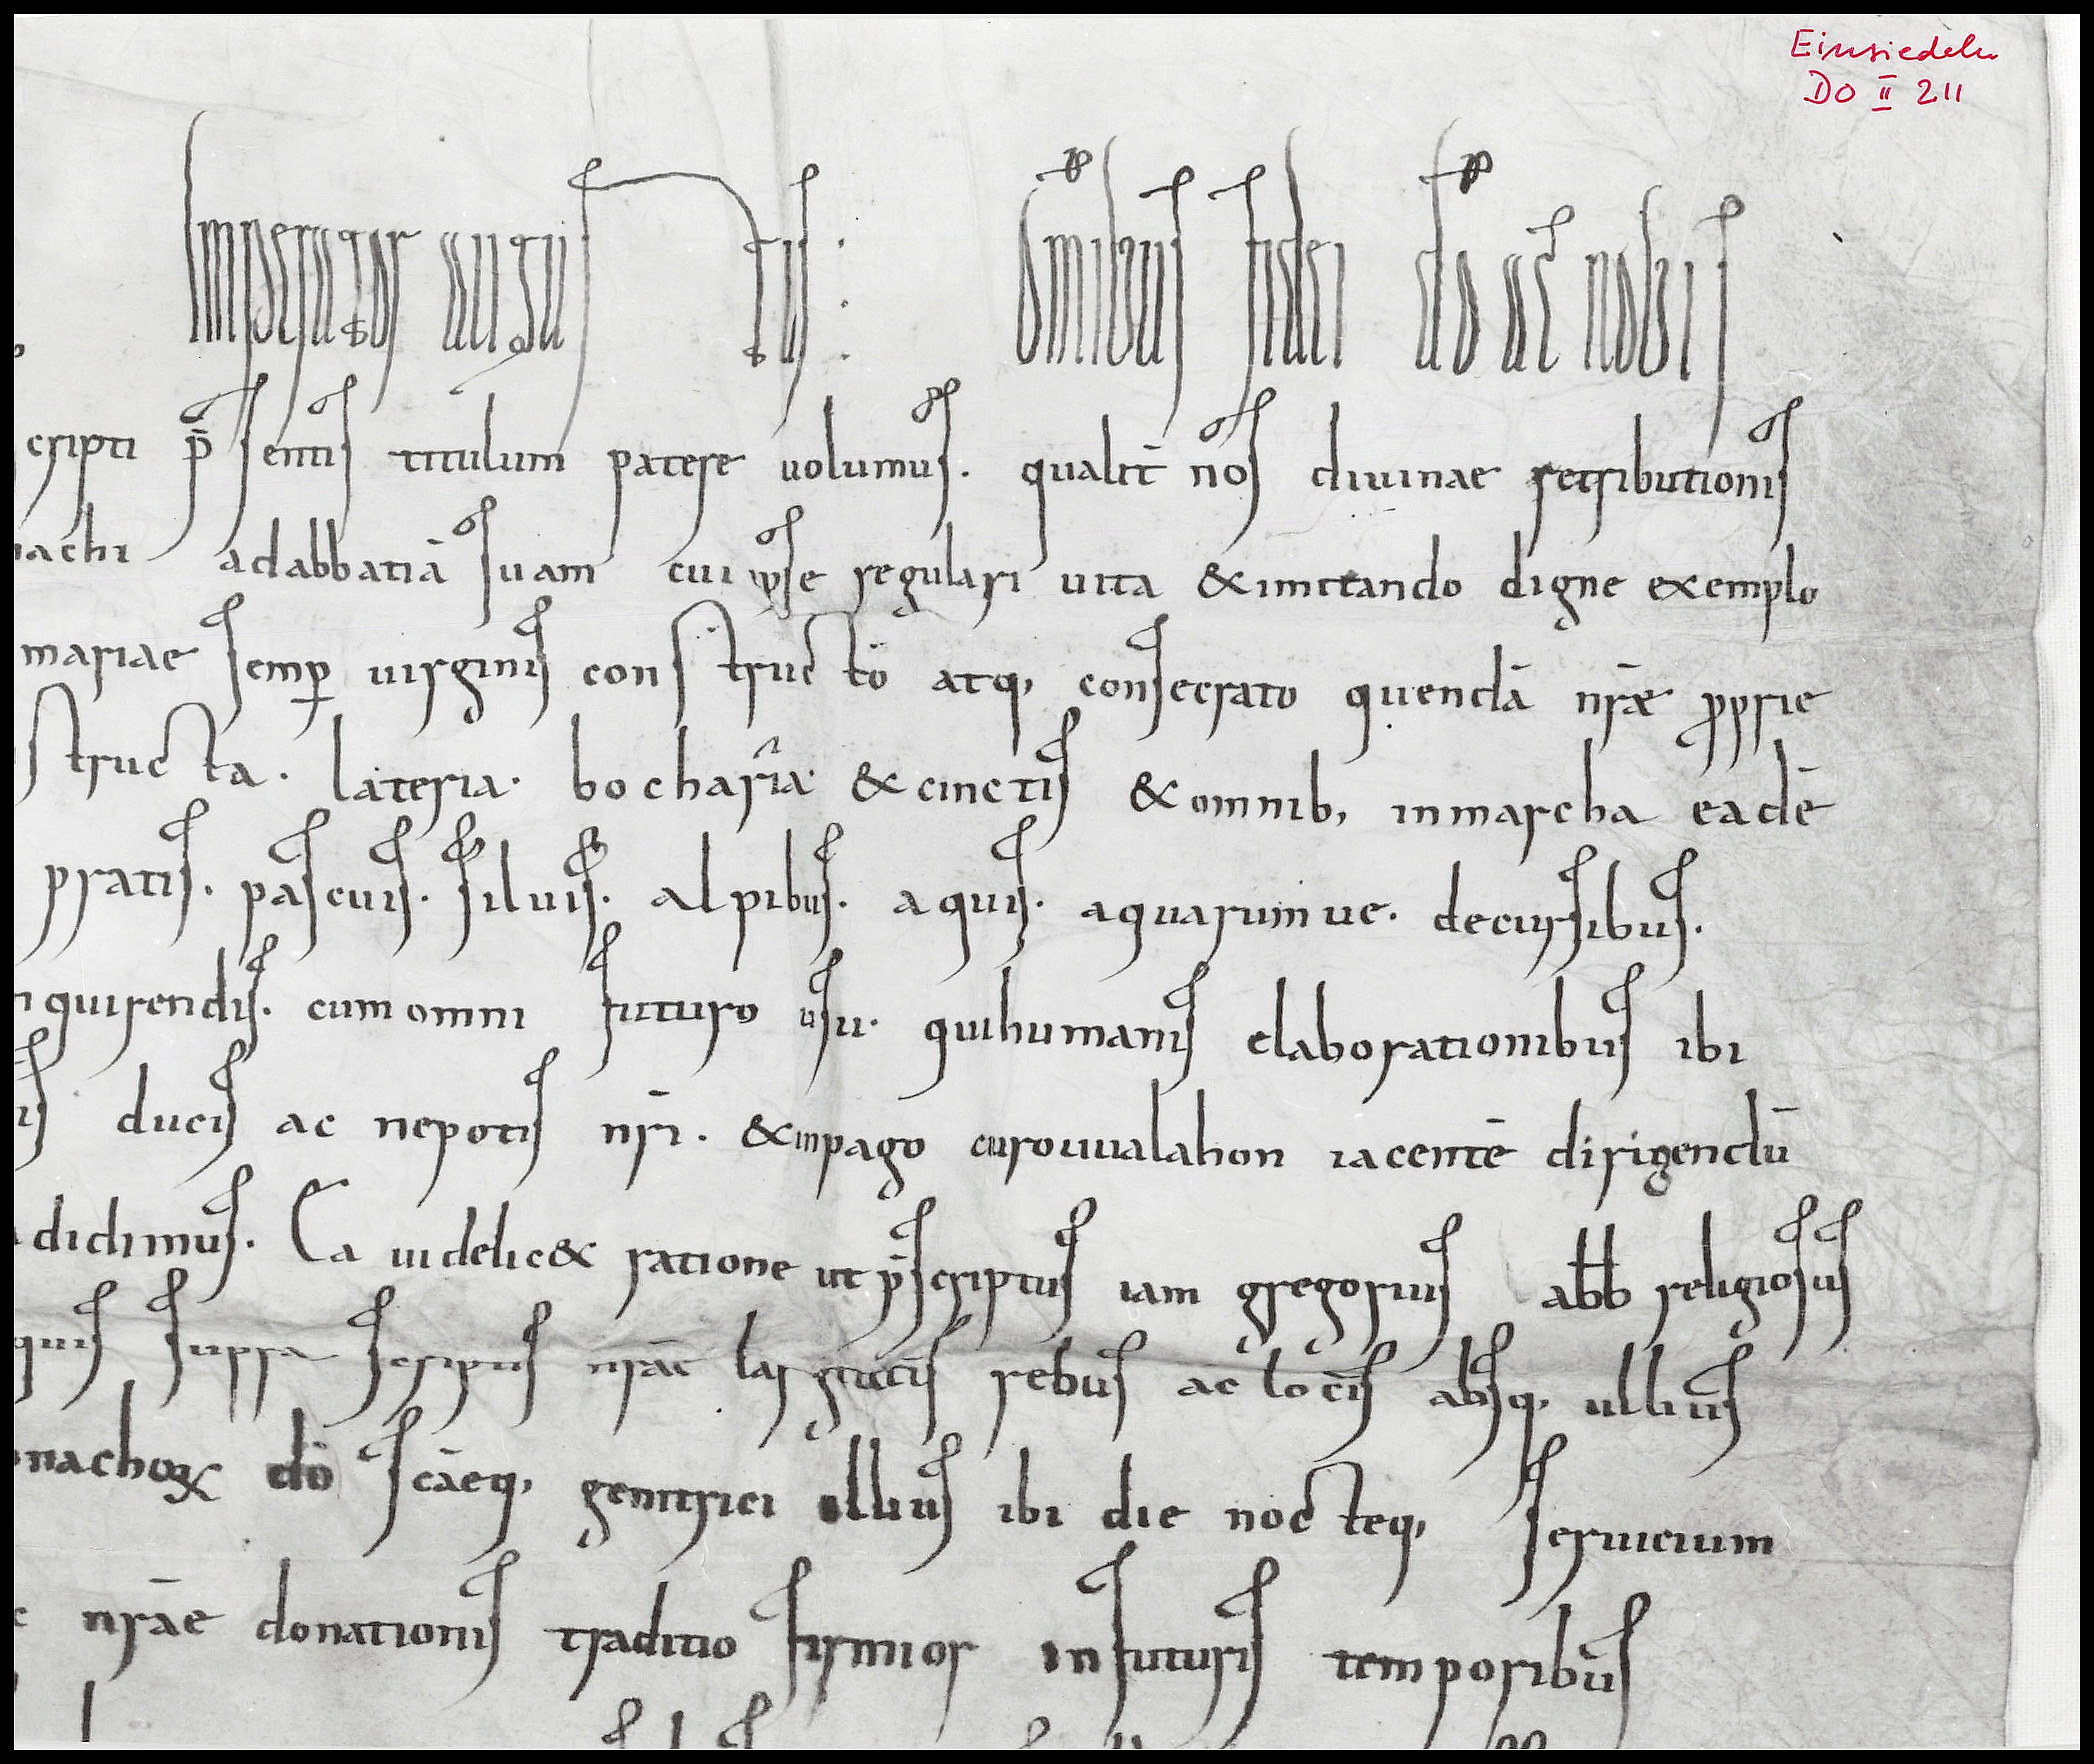 Einsiedeln
DO II 211
Imperator augustus: Omnibus fidei do ac̄ nobis
cripti p̄sentis titulum patere uolumus. qualit̄ nos diuinae retributionis
nachi adabbatiā suam cui ipse regulari uita &imitando digne exemplo
mariae semp̱ uirginis constructo atq, consecrato quendā nr̄ae ꝓprie
structa. lateria. bocharia &cinctis &omnib, inmarcha eadē
pratis. pascuis. siluis. alpibus. aquis. aquarumue. decursibus.
nquirendis. cumomni futuro usu. quihumanis elaborationibus ibi
is ducis ac nepotis nr̄i. &inpago curouualahon iacentē dirigendū
adidimus. Ea uidelic& ratione ut p̄scriptus iam gregorius abb̄ religiosus
quis supra scriptis nr̄ae largitatis rebus ac locis absq, ullius
onachoꝝ dō scāeq, genitrici illius ibi die nocteq, seruicium
nr̄ae donationis traditio firmior infuturis temporibus